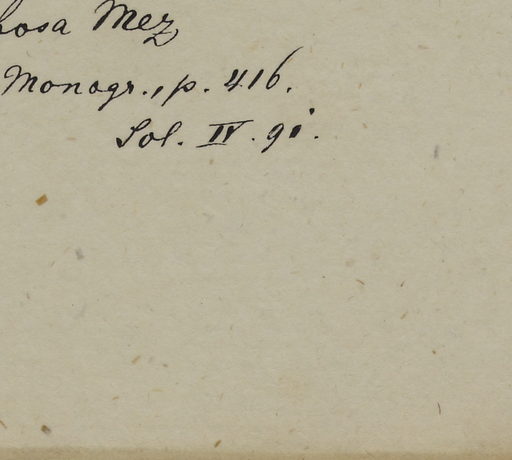 hosa Mez
Monogr., p. 416.
Sol. IV. 91.